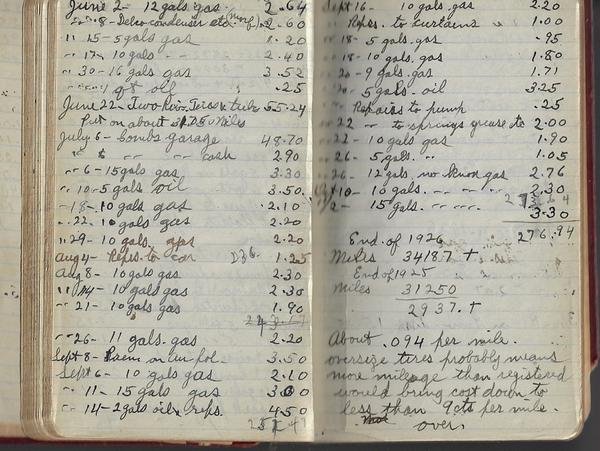 June 2 - 12 gals gas 2.64
" " 8 - Delco condenser etc. 2.60
" 15 - 5 gals gas 1.20
" 17 - 10 gals " " 2.40
" 30 - 16 gals gas 3.52
" " 1 gt oil .25
June 22 - Two Tires & tubes 55.24
Put on about Miles
July 6 - Combs garage 48.70
" " " " cash 2.90
" 6 - 15 gals gas 3.30
" 10 - 5 gals oil 3.50
" 18 - 10 gals gas 2.10
" 22 - 10 gals gas 2.20
" 29 - 10 gals gas 2.20
Aug 4 - Reps. to car 1.25
Aug 8 - 10 gals gas 2.30
" 14 - 10 gals gas 2.30
" 21 - 10 gals gas 1.90
" 26 - 11 gals. gas 2.20
Sept 8 - Prem. on Pol. 3.50
Sept 6 - 10 gals gas 2.10
" 11 - 15 gals gas 3.00
" 14 - 2 gals oil & reps. 4.50
Sept 16 - 10 gals. gas 2.20
" Repss. to curtains 1.00
" 18 - 5 gals. gas .95
" 18 - 10 gals. gas 1.80
" 20 - 9 gals. gas 1.71
" 20 - 5 gals. oil 3.25
" Repairs to pump .25
" 22 " to springs grease etc 2.00
" 22 - 10 gals gas 1.90
" 26 - 5 gals. " 1.05
" 26 - 12 gals, no knox gas 2.76
10 - 10 gals. " " 2.30
2 - 15 gals. " " 3.30
276.94
End of 1926
Miles 34187 +
End of 1925
Miles 31250
2937. +
About .094 per mile.
oversize tires probably means
more mileage than registered
would bring cost down to
less than 9cts per mile.
over.